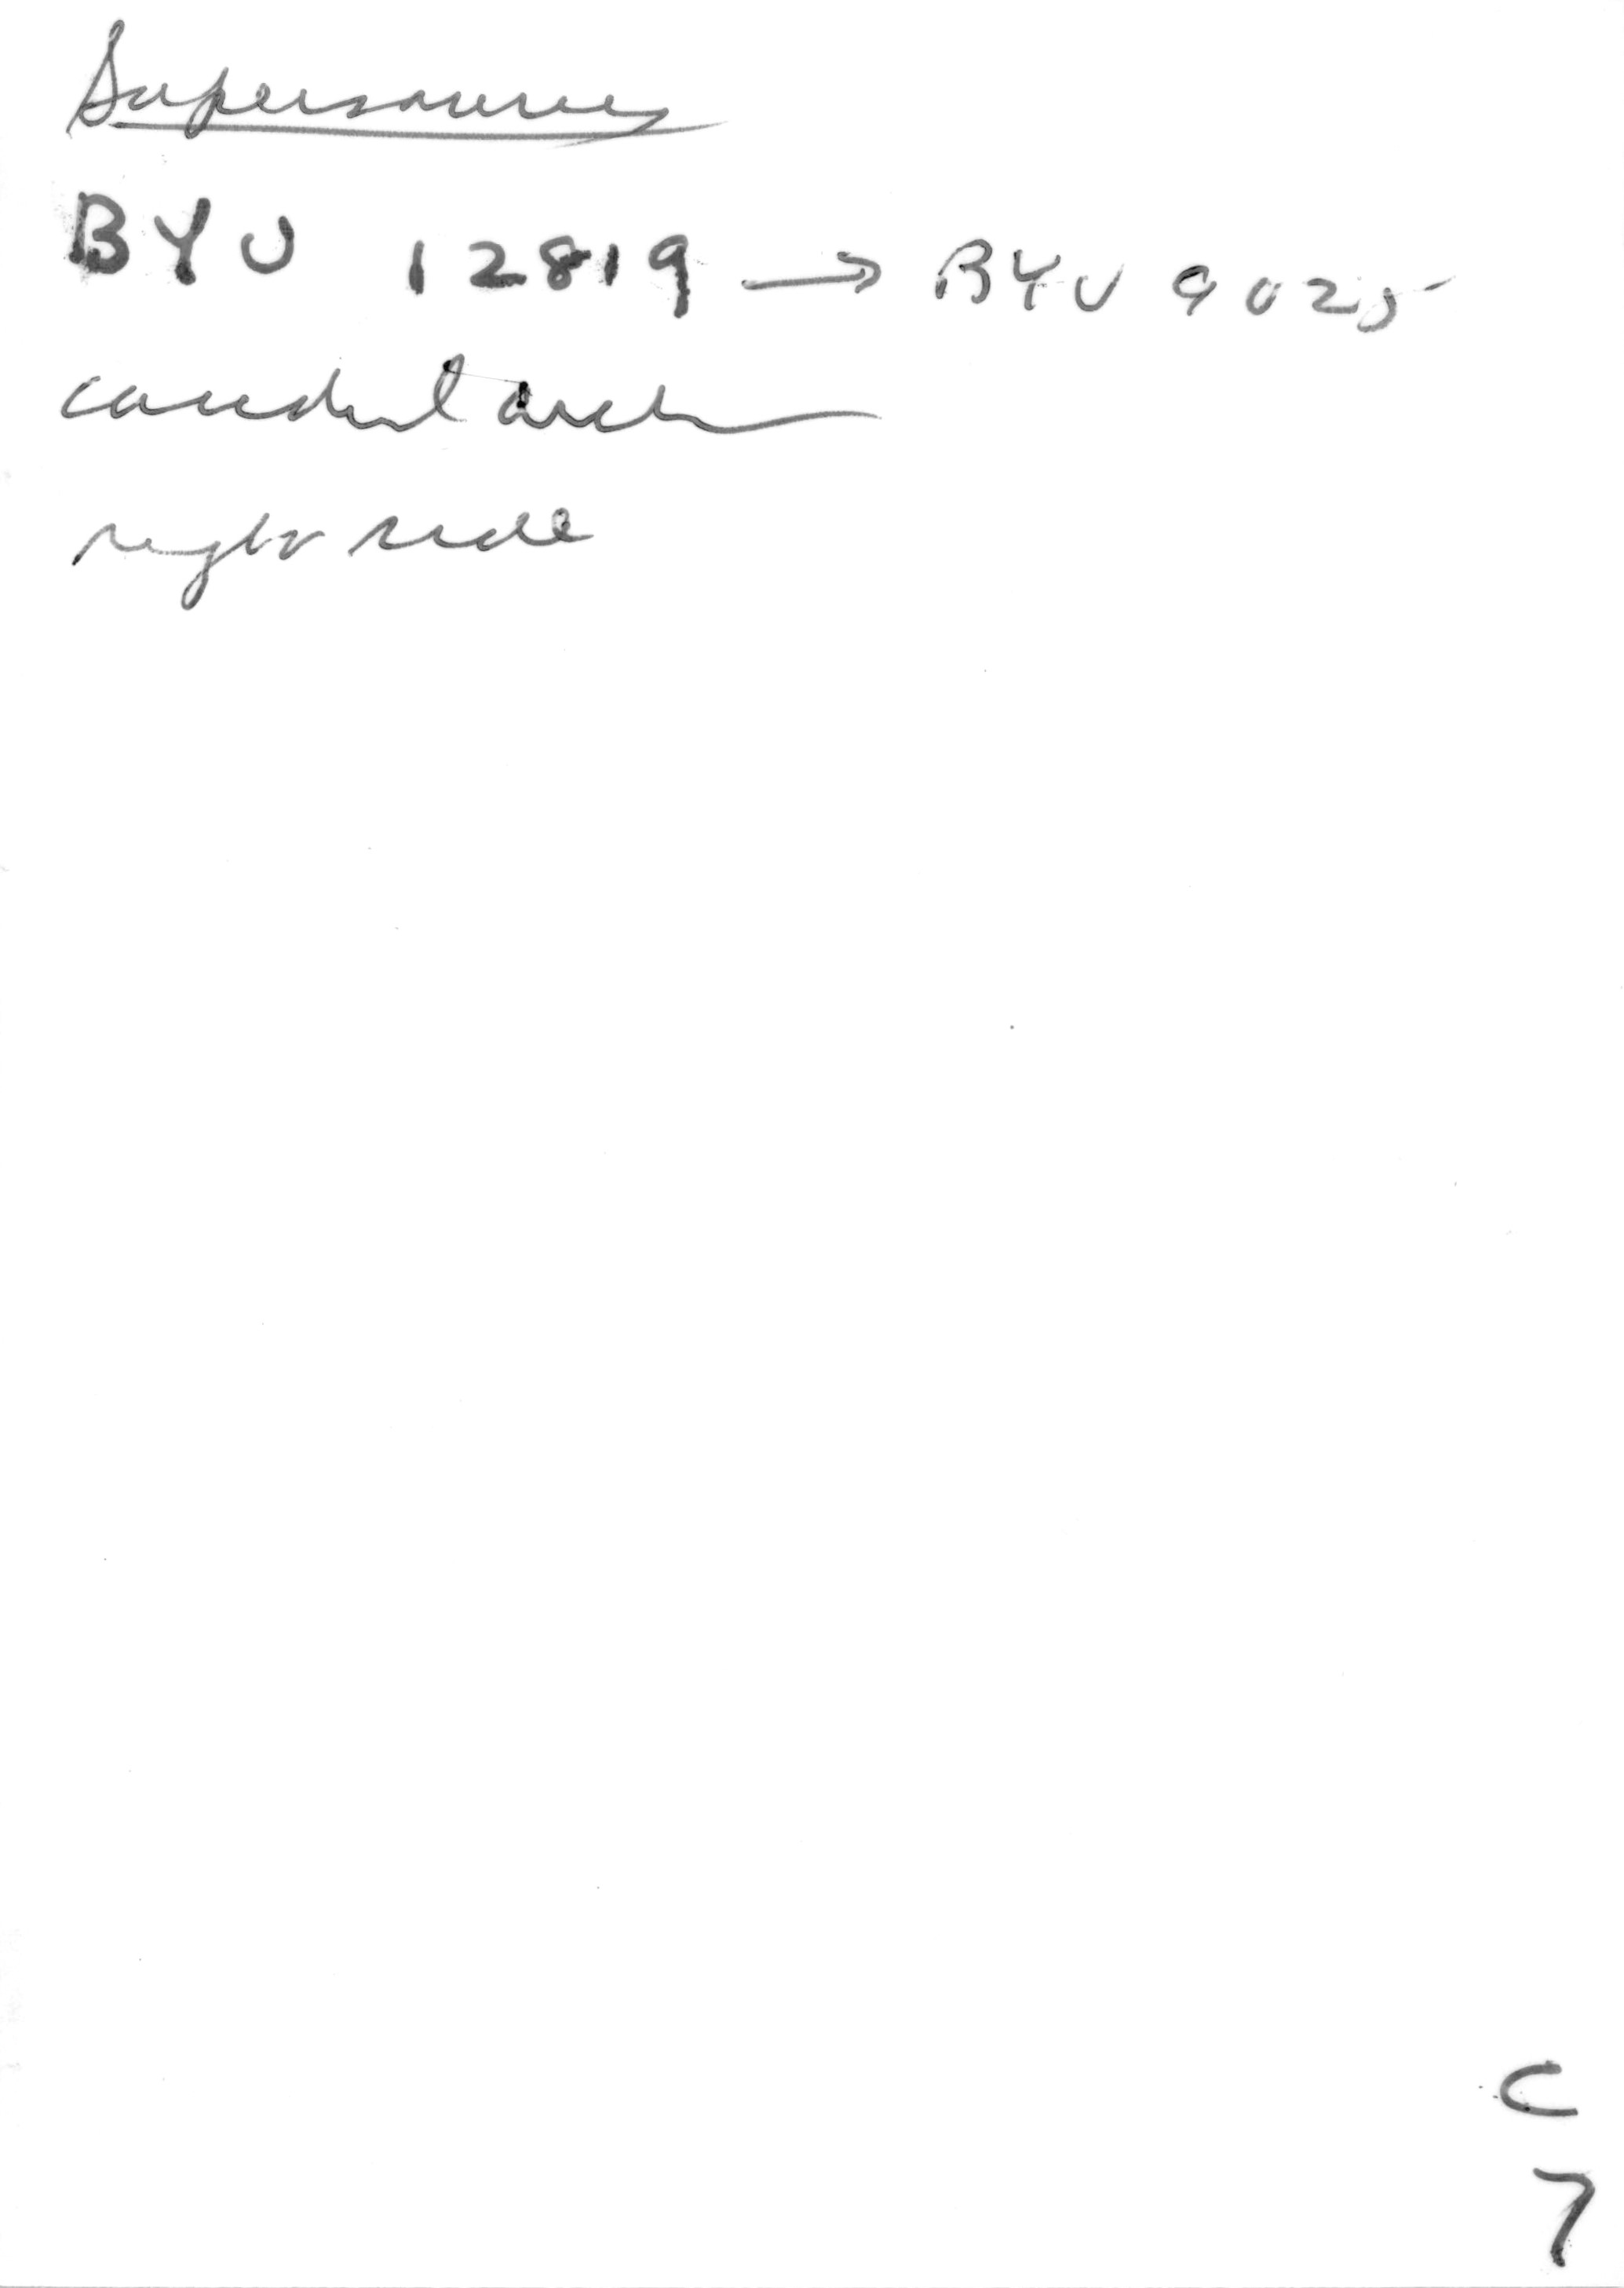 Supersaurus
BYU 12819 → BYU 9025
caudal arch
right side
C
7